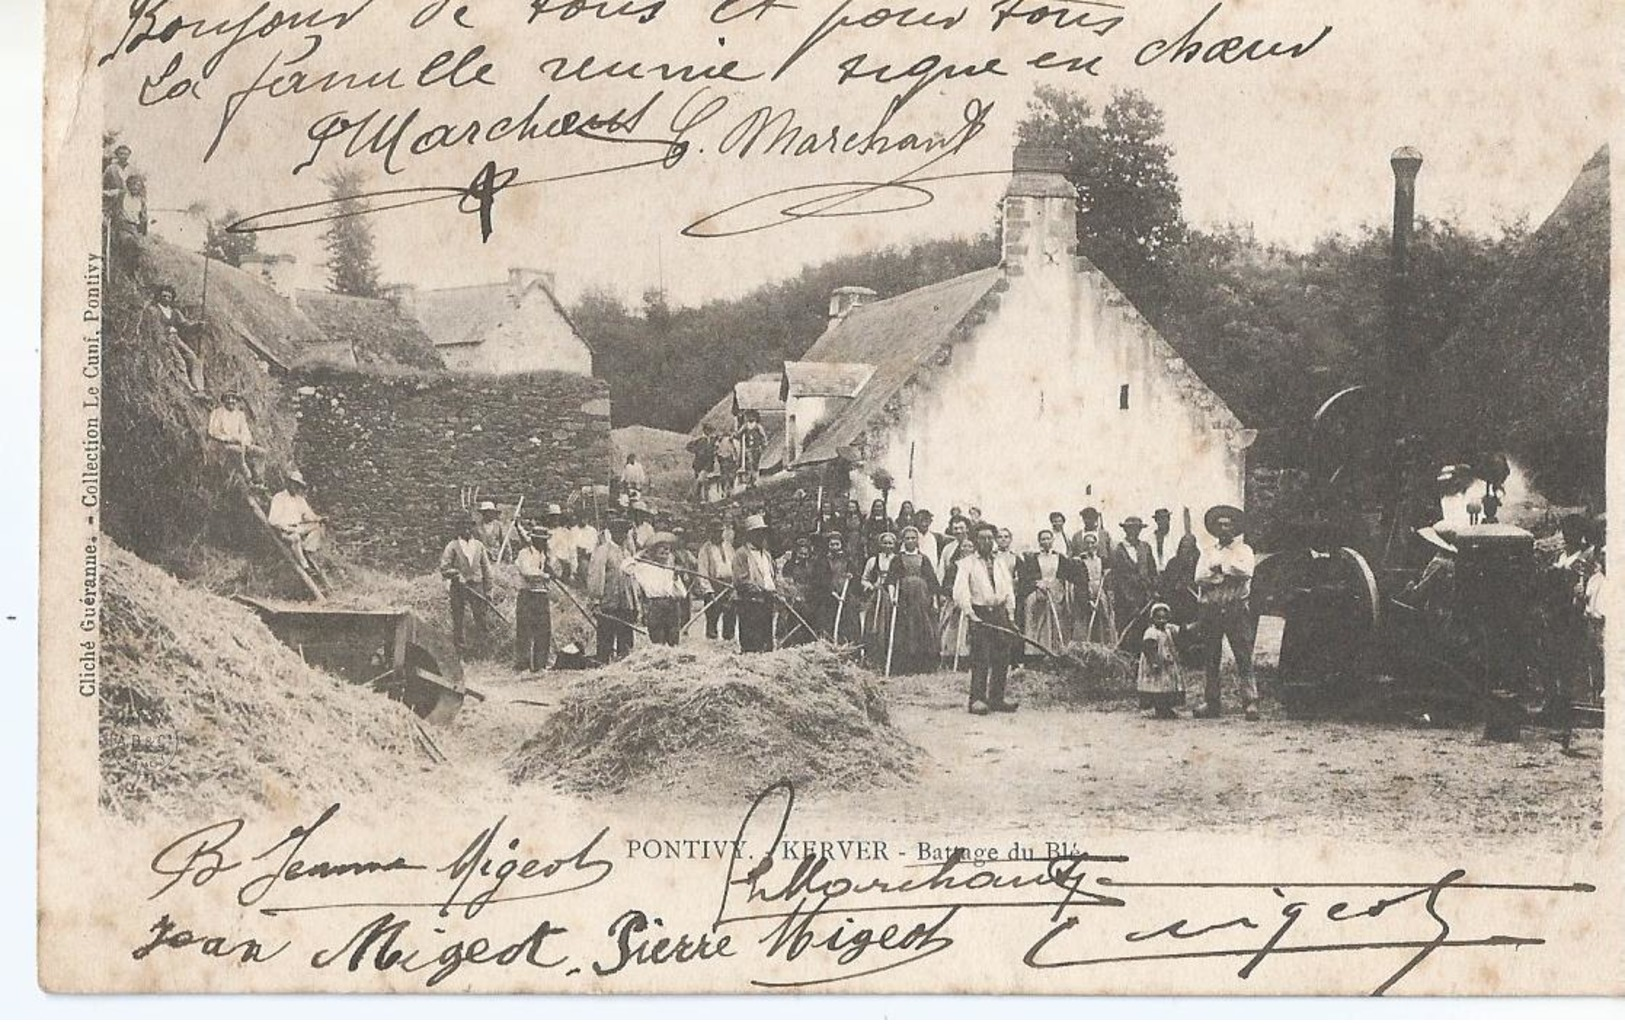 Bonjour de tous et pour tous
La famille reunie signe en chœur
PMarchant G. Marchant
Cliché Guéranne. - Collection Le Cunf, Pontivy
PONTIVY. - KERVER - Battage du Blé
B Jeanne Migeot Marchant
Jean Migeot. Pierre Migeot Migeot